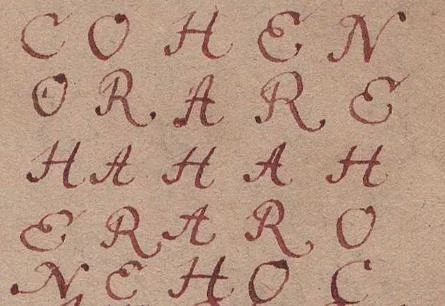 C O H E N
O R A R E
H A H A H
E R A R O
N E H O C